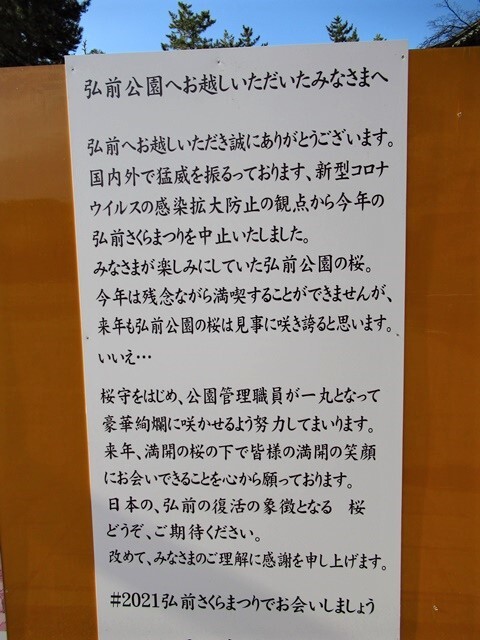 弘前公園へお越しいただいたみなさまへ
弘前へお越しいただき誠にありがとうございます。
国内外で猛威を振るっております、新型コロナ
ウイルスの感染拡大防止の観点から今年の
弘前さくらまつりを中止いたしました。
みなさまが楽しみにしていた弘前公園の桜。
今年は残念ながら満喫することができませんが、
来年も弘前公園の桜は見事に咲き誇ると思います。
いいえ…
桜守をはじめ、公園管理職員が一丸となって
豪華絢爛に咲かせるよう努力してまいります。
来年、満開の桜の下で皆様の満開の笑顔
にお会いできることを心から願っております。
日本の、弘前の復活の象徴となる 桜
どうぞ、ご期待ください。
改めて、みなさまのご理解に感謝を申し上げます。
#2021弘前さくらまつりでお会いしましょう